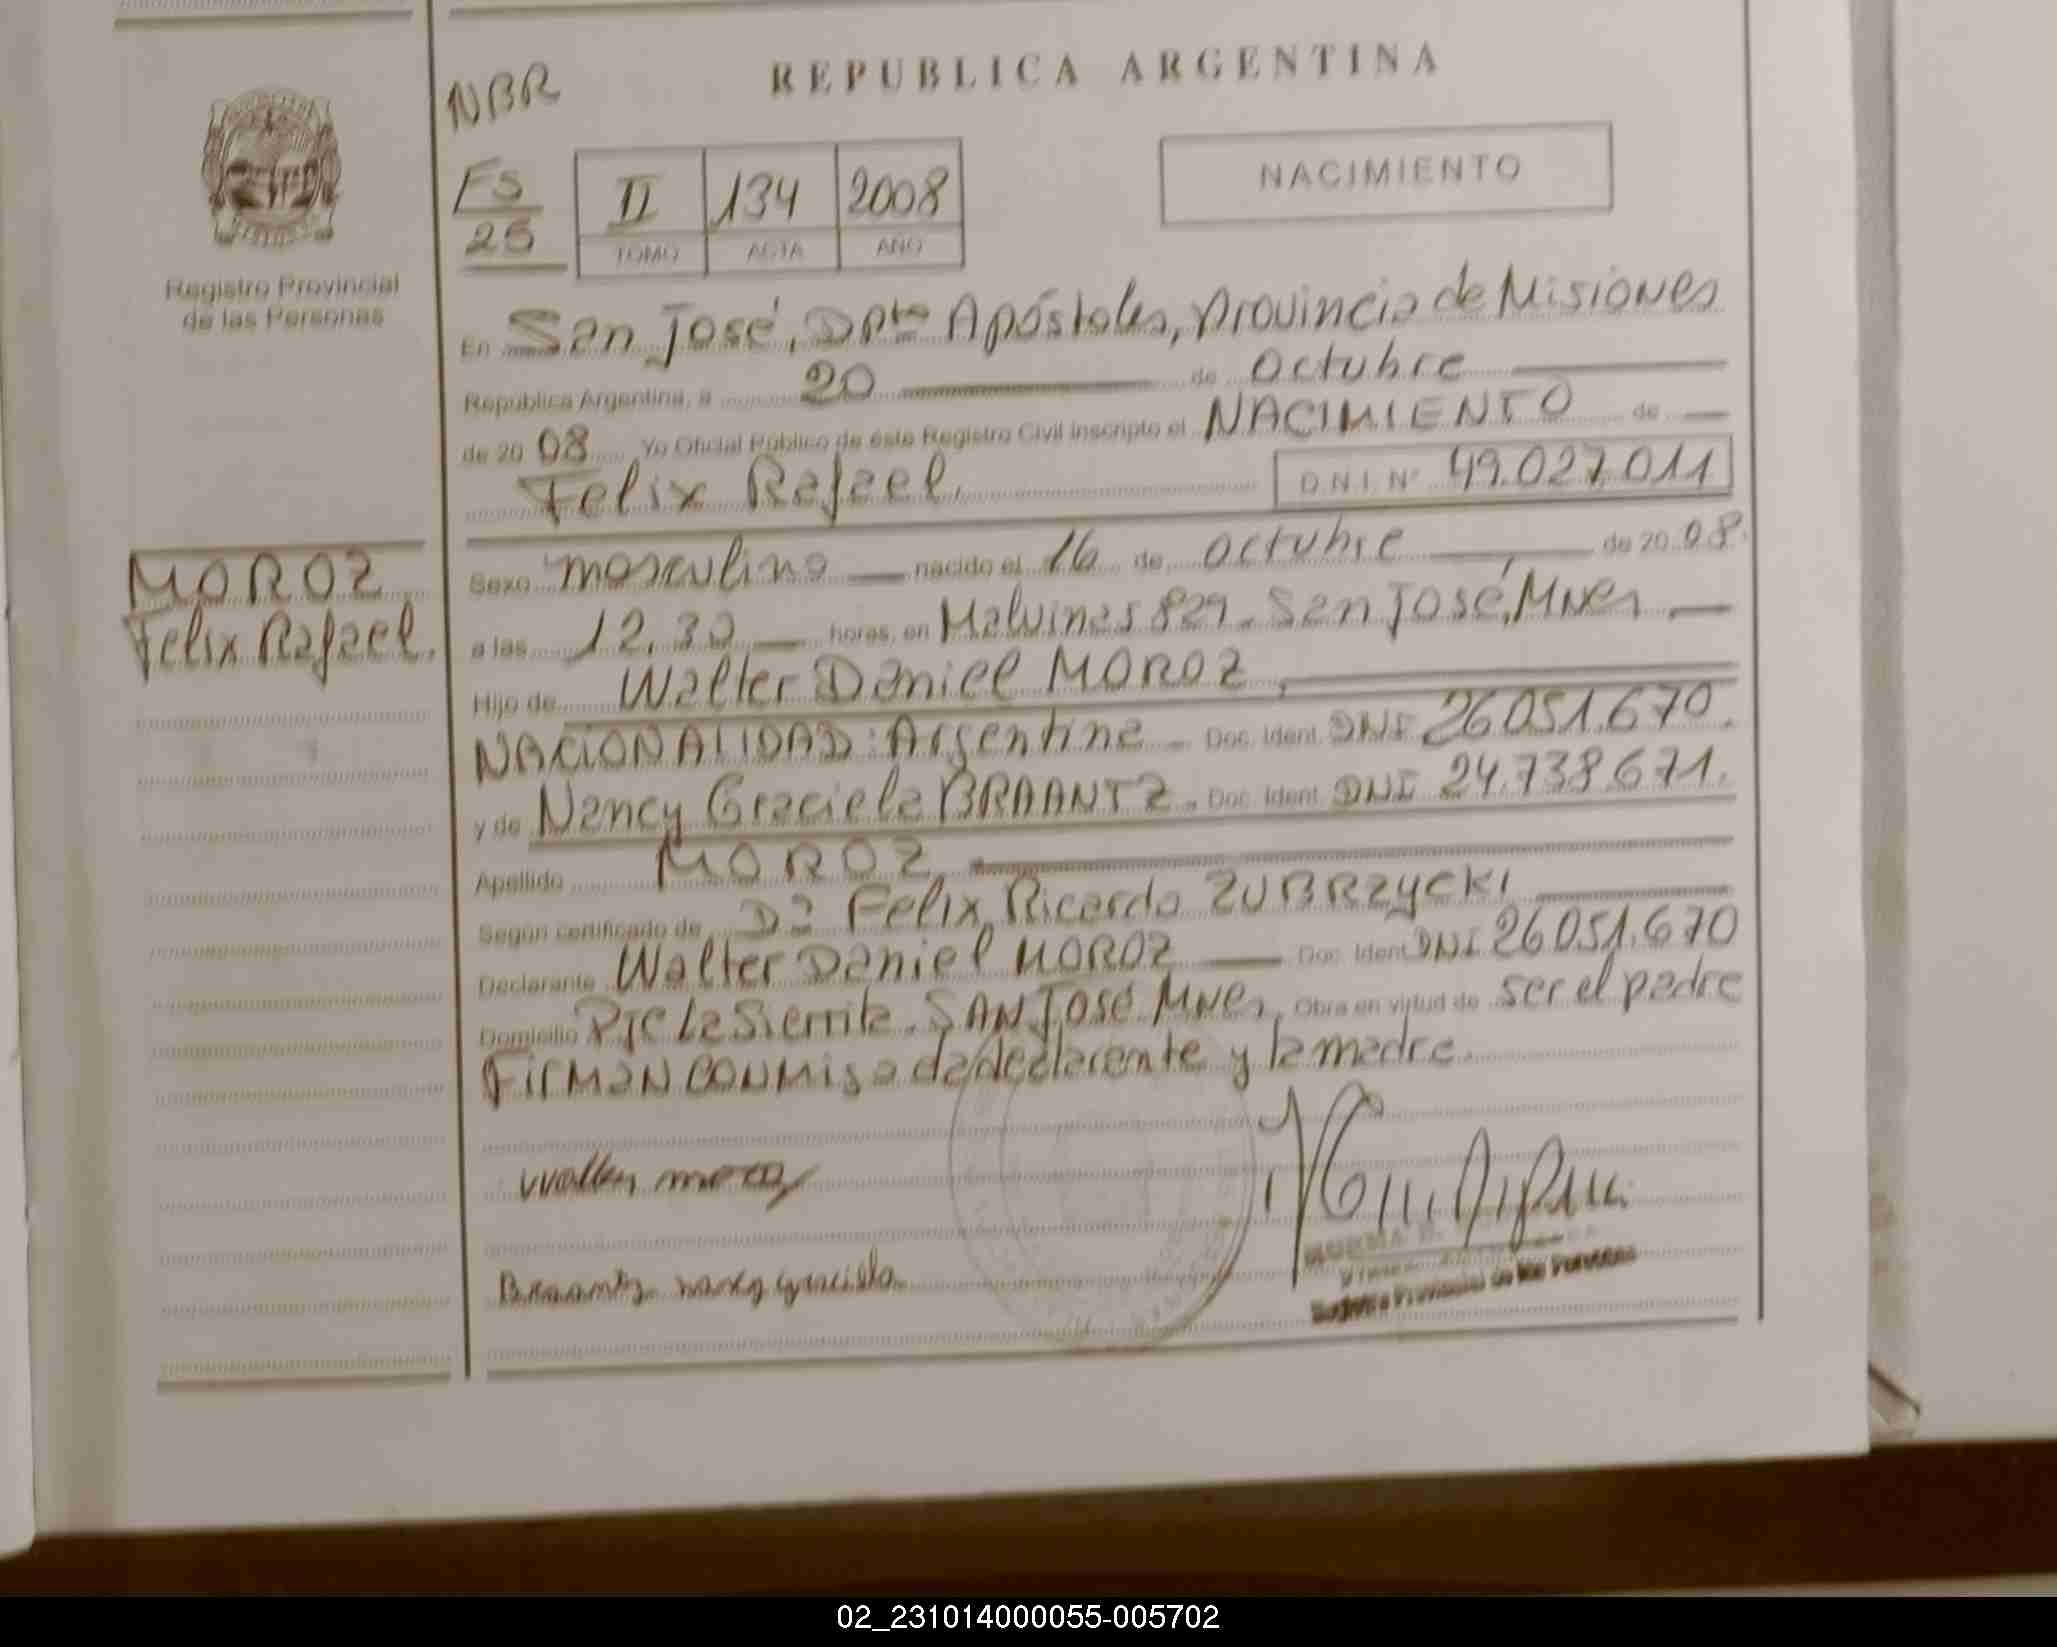 REPUBLICA ARGENTINA
NBR
Fs
25
II 134 2008
TOMO ACTA AÑO
NACIMIENTO
Registro Provincial
de las Personas
En San José, Dpto Apóstoles, Provincia de Misiones
República Argentina, a 20 de Octubre
de 2008 Yo Oficial Público de éste Registro Civil inscripto el NACIMIENTO de
Felix Rafael. D.N.I. Nº 49.027.011
MOROZ
Felix Rafael.
Sexo masculino nacido el 16 de octubre de 2008.
a las 12,30 horas, en Malvinas 829. San José, Mnes
Hijo de Walter Daniel MOROZ,
NACIONALIDAD: Argentina - Doc. Ident. DNI 26051.670.
y de Nancy Graciela BRAANTZ. Doc. Ident. DNI 24.738.671.
Apellido MOROZ
Según certificado de Felix Ricardo ZUBRZYCKI
Declarante Walter Daniel MOROZ Doc. Ident DNI 26051.670
Domicilio Pje La Sierrita. SAN JOSÉ Mnes, Obra en virtud de ser el padre
Firman conmigo declarante y la madre.
Walter moroz
Braantz nancy graciela
NORMA B.
Registro Provincial de las Personas
02_231014000055-005702